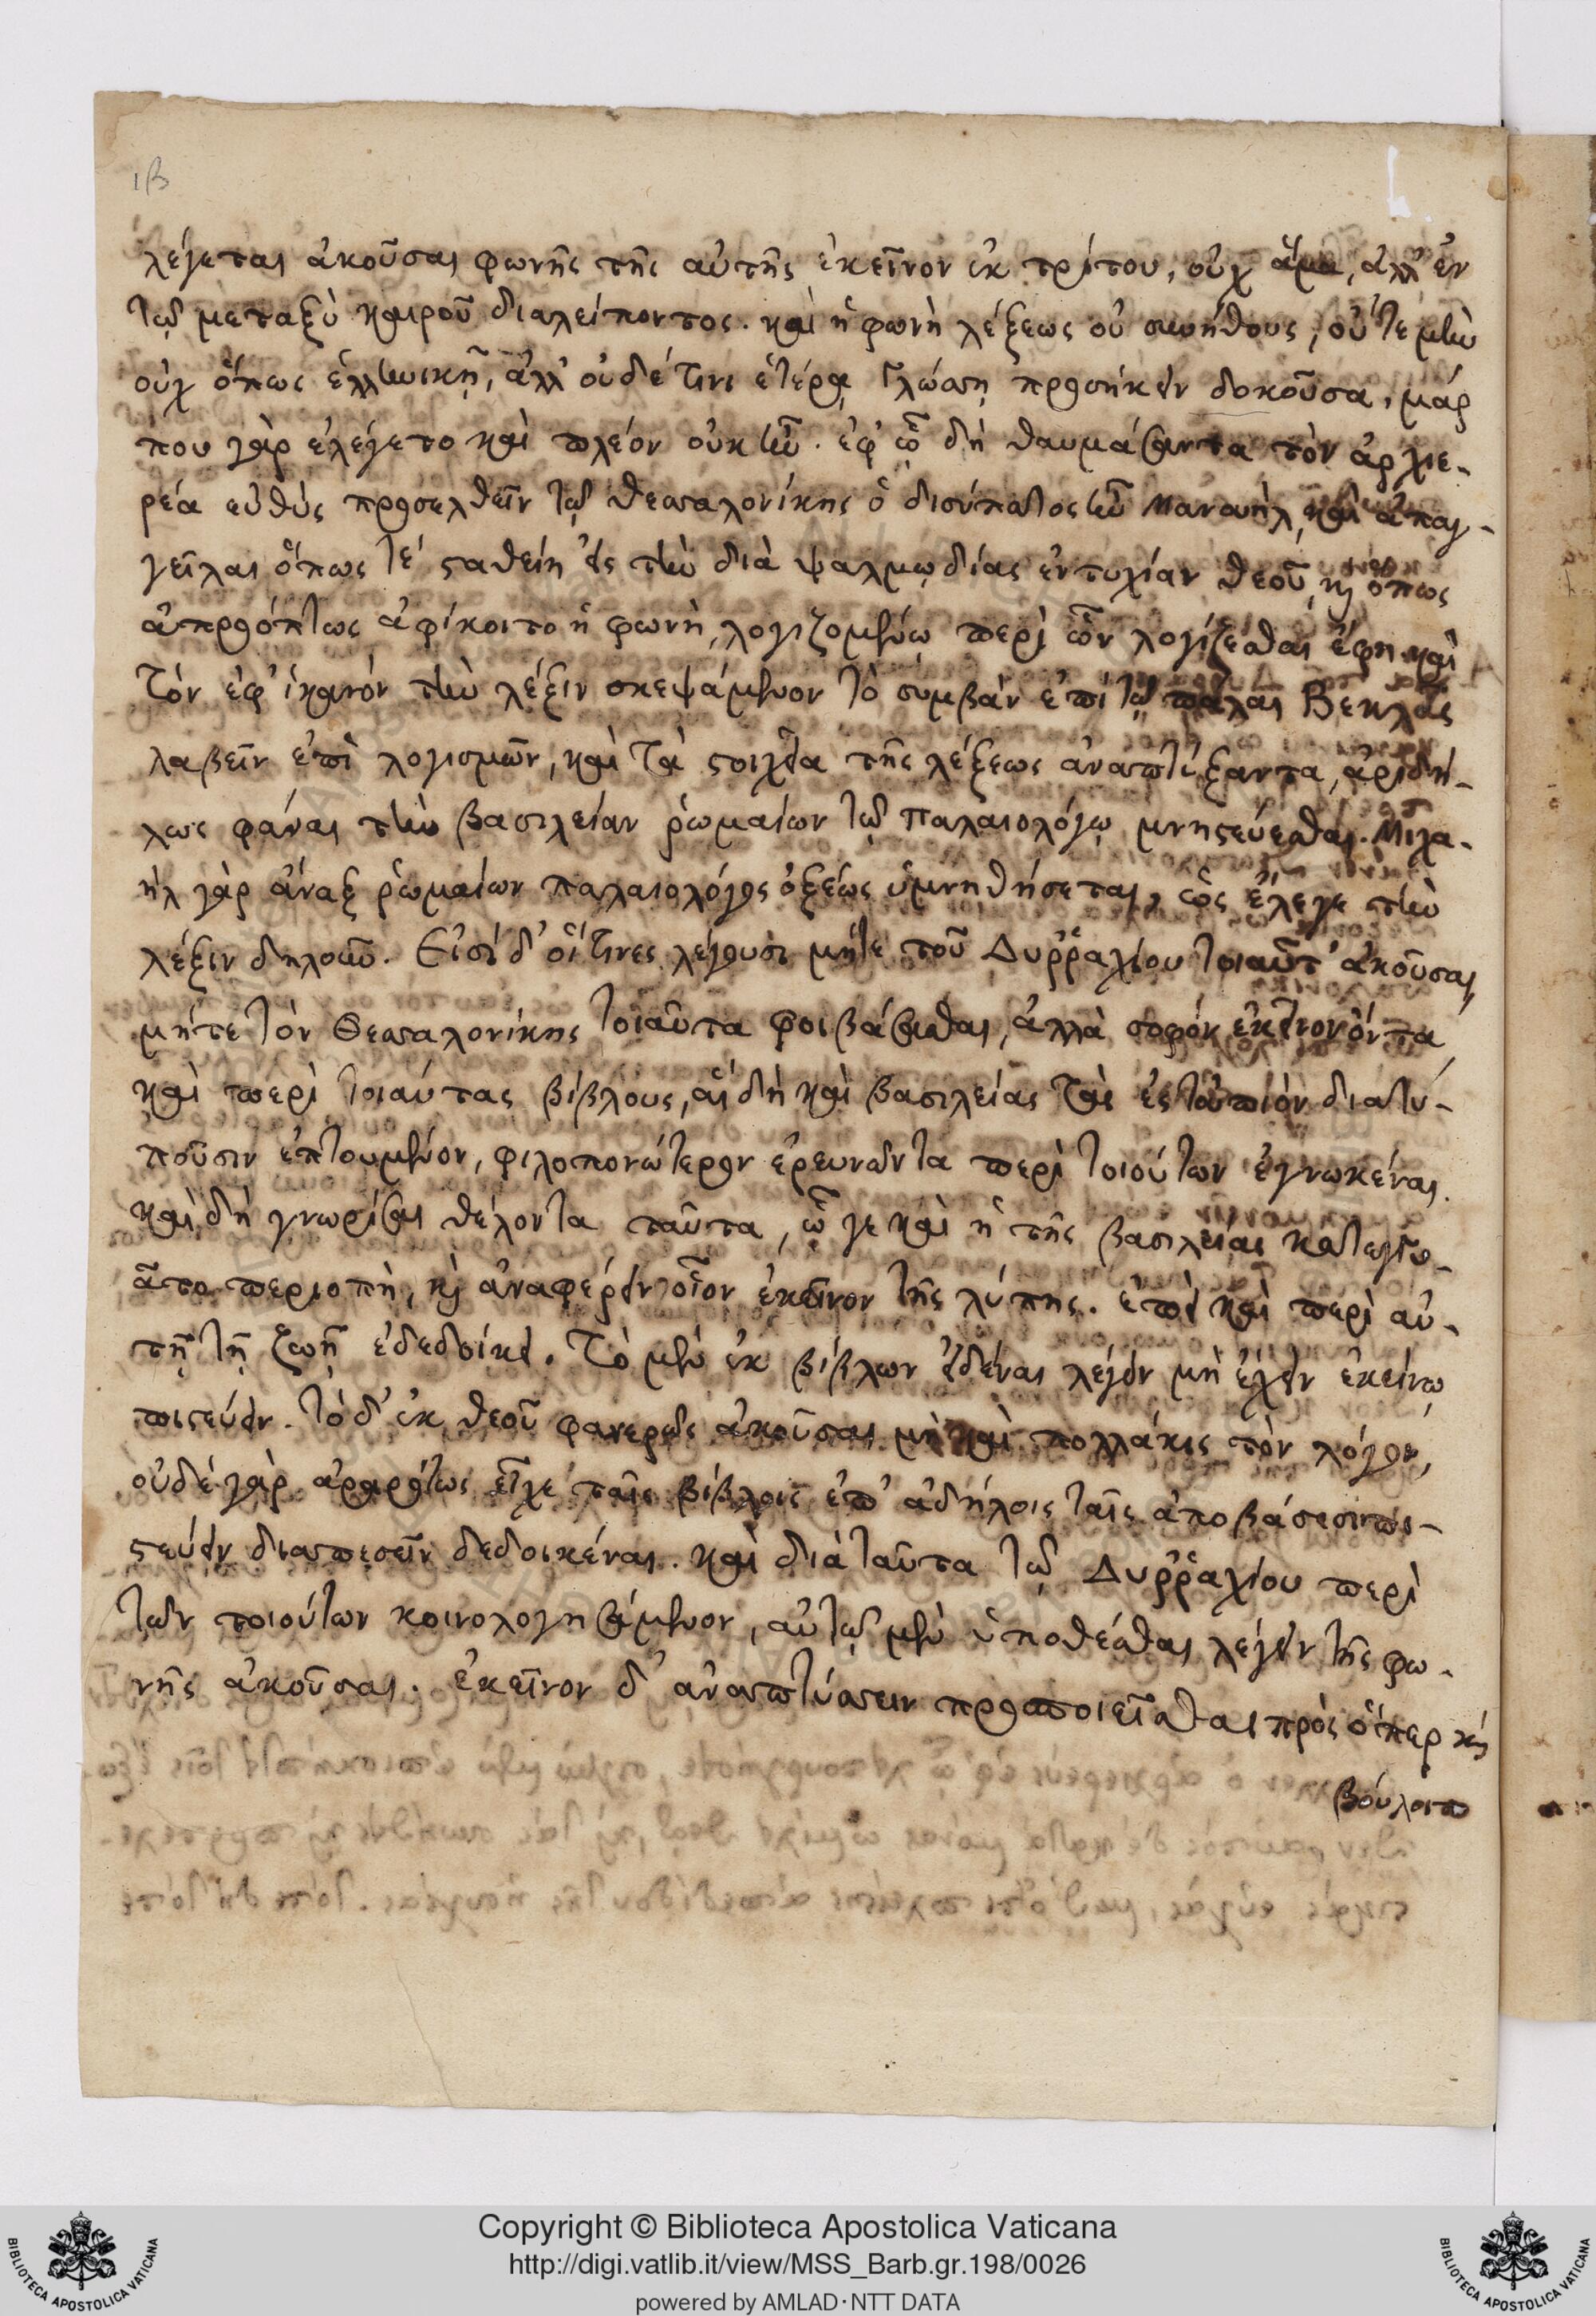 ιβ
λέγεται ἀκοῦσαι φωνῆς τῆς αὐτῆς ἐκεῖνον ἐκ τρίτου, οὐχ ἅμα, ἀλλ' ἐν
τῷ μεταξὺ καιροῦ διαλείποντος. καὶ ἡ φωνὴ λέξεως οὐ συνήθους, οὔτε μὴν
οὐχ ὅπως ἑλληνικῇ, ἀλλ' οὐδέ τινι ἑτέρᾳ γλώσσῃ προσήκειν δοκοῦσα, μάρ
που γὰρ ἐλέγετο καὶ πλέον οὐκ ἦν. ἐφ' ᾧ δὴ θαυμάσαντα τὸν ἀρχιε-
ρέα εὐθὺς προσελθεῖν τῷ Θεσσαλονίκης ὁ δισύπατος ἦν Μανουὴλ, καὶ ἀπαγ-
γεῖλαι ὅπως τε σταθείη εἰς τὴν διὰ ψαλμῳδίας ἐντυχίαν θεοῦ, κὶ ὅπως
ἀπροόπτως ἀφίκοιτο ἡ φωνὴ, λογιζομένῳ περὶ ὧν λογίζεσθαι ἔφη καὶ
τὸν ἐφ' ἱκανόν τὴν λέξιν σκεψάμενον τὸ συμβὰν ἐπὶ τῷ πάλαι Βεκλᾶς
λαβεῖν ἐπὶ λογισμῶν, καὶ τὰ στοιχεῖα τῆς λέξεως ἀναπτύξαντα, ἀριδή-
λως φάναι τὴν βασιλείαν ῥωμαίων τῷ Παλαιολόγῳ μνηστεύεσθαι. Μιχα-
ὴλ γὰρ ἄναξ ῥωμαίων παλαιολόγος ὀξέως ὑμνηθήσεται, ὡς ἔλεγε τὴν
λέξιν δηλοῦν. Εἰσὶ δ' οἵ τινες λέγουσι μήτε τοῦ Δυῤῥαχίου τοιαῦτ' ἀκοῦσαι,
μήτε τὸν Θεσσαλονίκης τοιαῦτα φοιβάσασθαι, ἀλλὰ σοφὸν ἐκεῖνον ὄντα,
καὶ περὶ τοιαύτας βίβλους, αἳ δὴ καὶ βασιλείας τὰς ἐς τοὐπιὸν διατυ-
ποῦσιν ἐπτουμένον, φιλοπονώτερον ἐρευνῶντα περὶ τοιούτων ἐγνωκέναι.
καὶ δὴ γνωρίσαι θέλοντα ταῦτα, ᾧ γε καὶ ἡ τῆς βασιλείας κατεγνω-
ᾶτο περιοπὴ, κὶ ἀναφέρειν οἷον ἐκεῖνον τῆς λύπης. ἐπεὶ καὶ περὶ αὐ-
τῇ τῇ ζωῇ ἐδεδοίκει. Τὸ μὲν ἐκ βίβλων εἰδέναι λέγειν μὴ ἔχειν ἐκείνῳ
πιστεύειν. τὸ δ' ἐκ θεοῦ φανερῶς ἀκοῦσαι μὴ καὶ πολλάκις τὸν λόγον,
οὐδὲ γὰρ ἀραρότως εἶχε ταῖς βίβλοις ἐπ' ἀδήλοις ταῖς ἀποβάσεσι πι-
στεύειν διαπεσεῖν δεδοικέναι. καὶ διὰ ταῦτα τῷ Δυῤῥαχίου περὶ
τῶν τοιούτων κοινολογησάμενον, αὐτῷ μὲν ὑποθέσθαι λέγειν τῆς φω-
νῆς ἀκοῦσαι. ἐκεῖνον δ' ἀναπτύσσειν προσποιεῖσθαι πρὸς ὅπερ κὶ
βούλοιτο
Copyright © Biblioteca Apostolica Vaticana
http://digi.vatlib.it/view/MSS_Barb.gr.198/0026
powered by AMLAD·NTT DATA
BIBLIOTECA APOSTOLICA VATICANA
BIBLIOTECA APOSTOLICA VATICANA